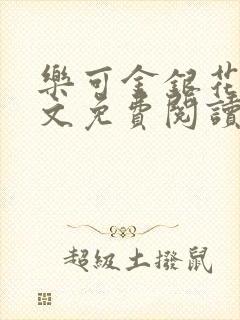 樂可金銀花
文免費閱讀
超級土撥鼠